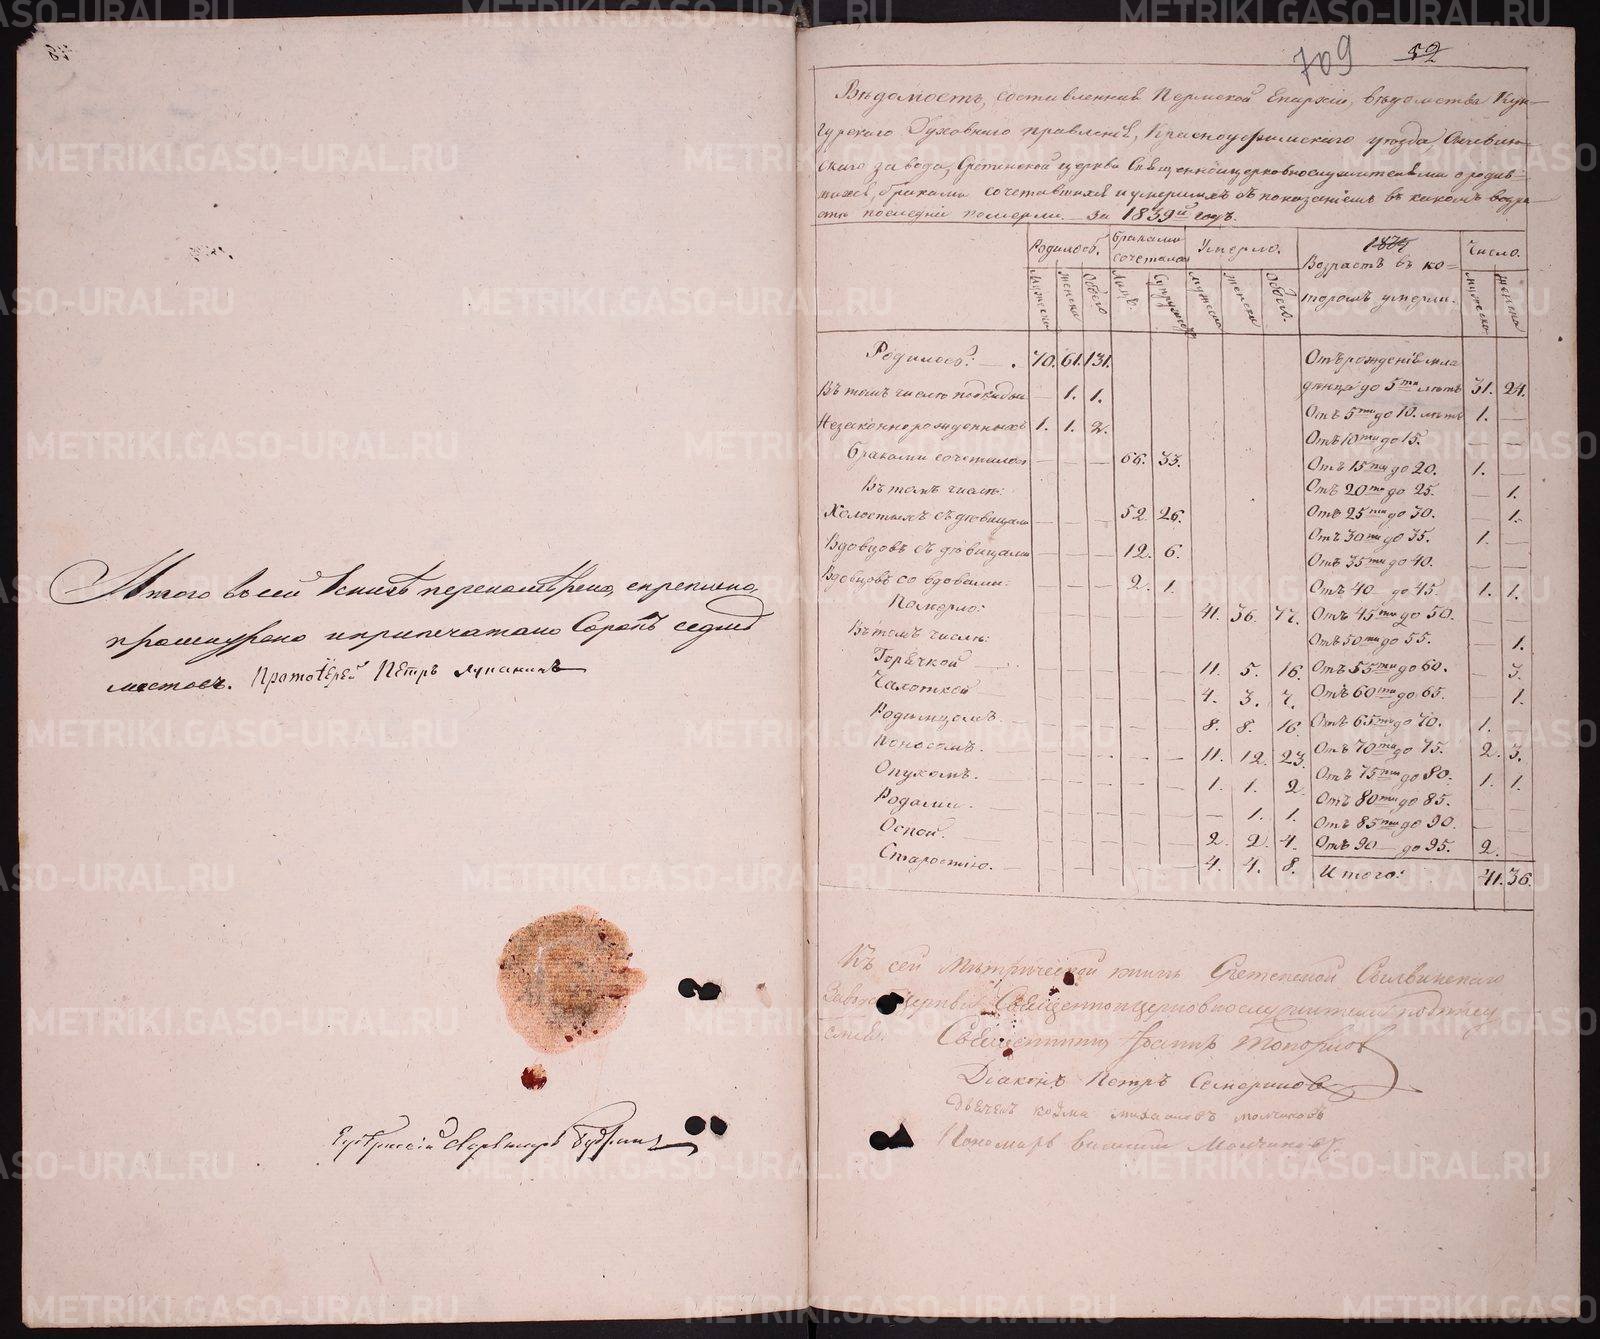 Итого в сей Книгѣ перенотѣрено, скреплено,
прошнурено и припечатано Сорокъ седмь
листовъ. Протоіерей Петръ Лупанинъ
709 52
Вѣдомость, составленная Пермской Епархіи, вѣдомства Кун-
гурскаго Духовнаго правленія, Красноуфимскаго уѣзда, Сылвин-
скаго завода, Срѣтенской церкви Священноицерковнослужителями о родив-
шихся, браками сочетавшихся и умершихъ съ показаніемъ въ какомъ возра-
стѣ послѣдніе померли за 1839й годъ.
Родилось. Браками сочеталось Умерло. Возрастъ въ ко- Число.
тором умерли.
Мужеска Женска Обоего Лицъ Супружествъ Мужеска Женска Обоего. Мужеска Женска
Родилось: 70. 61. 131. Отъ рожденія мла
Въ томъ числѣ подкидыш — 1. 1. денца до 5ти лѣтъ 31. 24.
Незаконнорожденныхъ 1. 1. 2. Отъ 5ти до 10. лѣтъ 1. —
Отъ 10ти до 15.
Браками сочеталось — — — 66. 33. Отъ 15ти до 20. 1. —
Въ томъ числѣ: Отъ 20ти до 25. — 1.
Холостыхъ съ дѣвицами — — — 52. 26. Отъ 25ти до 30. — 1.
Вдовцовъ съ дѣвицами — — — 12. 6. Отъ 30ти до 35. 1. —
Отъ 35ти до 40. — —
Вдовцовъ со вдовами: — — 2. 1. Отъ 40 до 45. 1. 1.
Померло: 41. 36. 77. Отъ 45ти до 50. — —
Въ томъ числѣ: Отъ 50ти до 55. — 1.
Горячкой — — — — — 11. 5. 16. Отъ 55ти до 60. — 3.
Чахоткой — — — — — 4. 3. 7. Отъ 60ти до 65. — 1.
Родимцомъ. — — — — — 8. 8. 16. Отъ 65ти до 70. 1. —
Поносомъ. — — — — — 11. 12. 23. Отъ 70ти до 75. 2. 3.
Опухомъ. — — — — — 1. 1. 2. Отъ 75ти до 80. 1. 1.
Отъ 80ти до 85. — —
Родами. — — — — — — 1. 1. Отъ 85ти до 90. — —
Оспой. — — — — — 2. 2. 4. Отъ 90 до 95. 2. —
Старостію. — — — — — 4. 4. 8. Итого: 41. 36.
Къ сей Метрической книгѣ Сретенской Сылвинскаго
Завода Церкви Священноицерковнослужители
Священникъ Топорков
Діаконъ Петръ Семериков
Дьячекъ Козма Михаиловъ Молчановъ
Пономарь Василий Молчановъ
METRIKI.GASO-URAL.RU